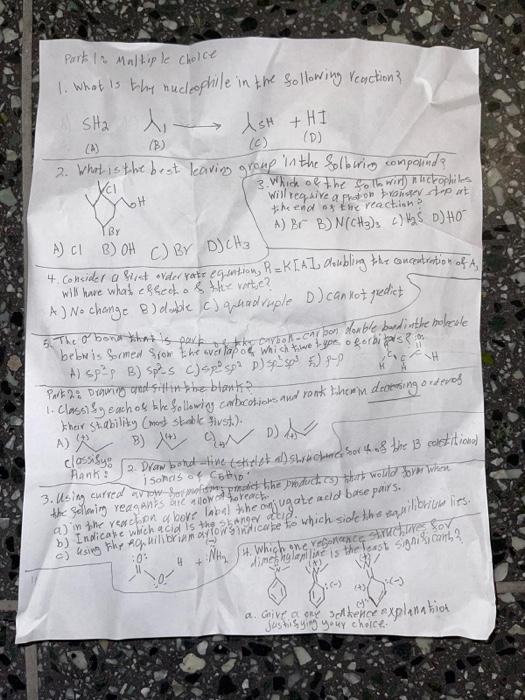 Part 1: Multiple choice
1. What is the nucleophile in the following reaction?
SH2 I → SH + HI
(A) (B) (C) (D)
2. What is the best leaving group in the following compound?
Cl
OH
Br
A) Cl B) OH C) Br D) CH3
3. Which of the following nucleophiles
will require a proton transfer step at
the end of the reaction?
A) Br⁻ B) N(CH3)3 C) H2S D) HO⁻
4. Consider a first order rate equation, R = K[A], doubling the concentration of A,
will have what effect of the rate?
A) No change B) double C) quadruple D) cannot predict
5. The σ bond that is part of the carbon-carbon double bond in the molecule
below is formed from the overlap of which two type of orbitals?
A) sp²-p B) sp²-s C) sp²-sp² D) sp²-sp³ E) p-p
H C C H
H
Part 2: Drawing and fill in the blank?
1. Classify each of the following carbocations and rank them in decreasing order of
their stability (most stable first).
A) (+) B) (+) C) (+) D) (+)
classify:
Rank:
2. Draw bond-line (skeletal) structures for 4 of the 13 constitutional
isomers of
3. Using curved arrow formalism, predict the product(s) that would form when
the following reagants are allowed to react.
a) in the reaction above label the conjugate acid base pairs.
b) Indicate which acid is the stronger acid.
c) Using the equilibrium arrows indicate to which side the equilibrium lies.
:O: O H + :NH2 (-)
4. Which one resonance structures for
dimethylaniline is the least significant?
N N N
(+) (+)
:(-) :(-)
a. Give a one sentence explanation
justifying your choice.